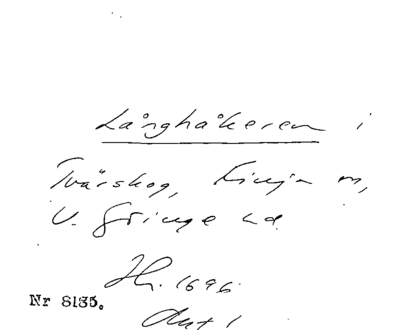 Långhåkeren i
Tvärskog, Linja m,
V. Göinge hd.
Hr. 1696.
Nr 8135.
Art 1